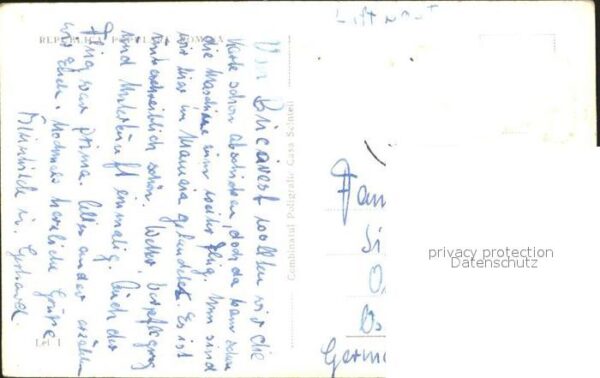 Luftpost
REPUBLICA POPULARA ROMINA
Von Bucarest wollten wir die
Karte schon abschicken, doch da kam schon
die Maschine zum Weiterflug. Nun sind
wir hier in Mamaia gelandet. Es ist
unbeschreiblich schön. Wetter, Verpflegung
und Unterkunft einmalig. Auch der
Flug war prima. Alles andere erzählen
wir Euch. Nochmals herzliche Grüße
Lei
Combinatul Poligrafic Casa Scinteii
Fam
Germ
privacy protection
Datenschutz